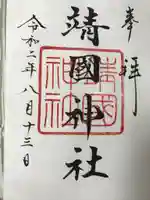 奉拝
靖國神社
靖国神社
令和二年八月十三日